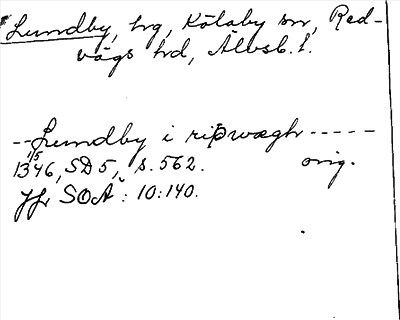 Lundby, hg, Kölaby sn, Red-
vägs hd, Älvsb. l.
--Lundby i riþwægh-----
1/5
1346, SD 5, s. 562. orig.
Jfr SOÄ: 10:140.